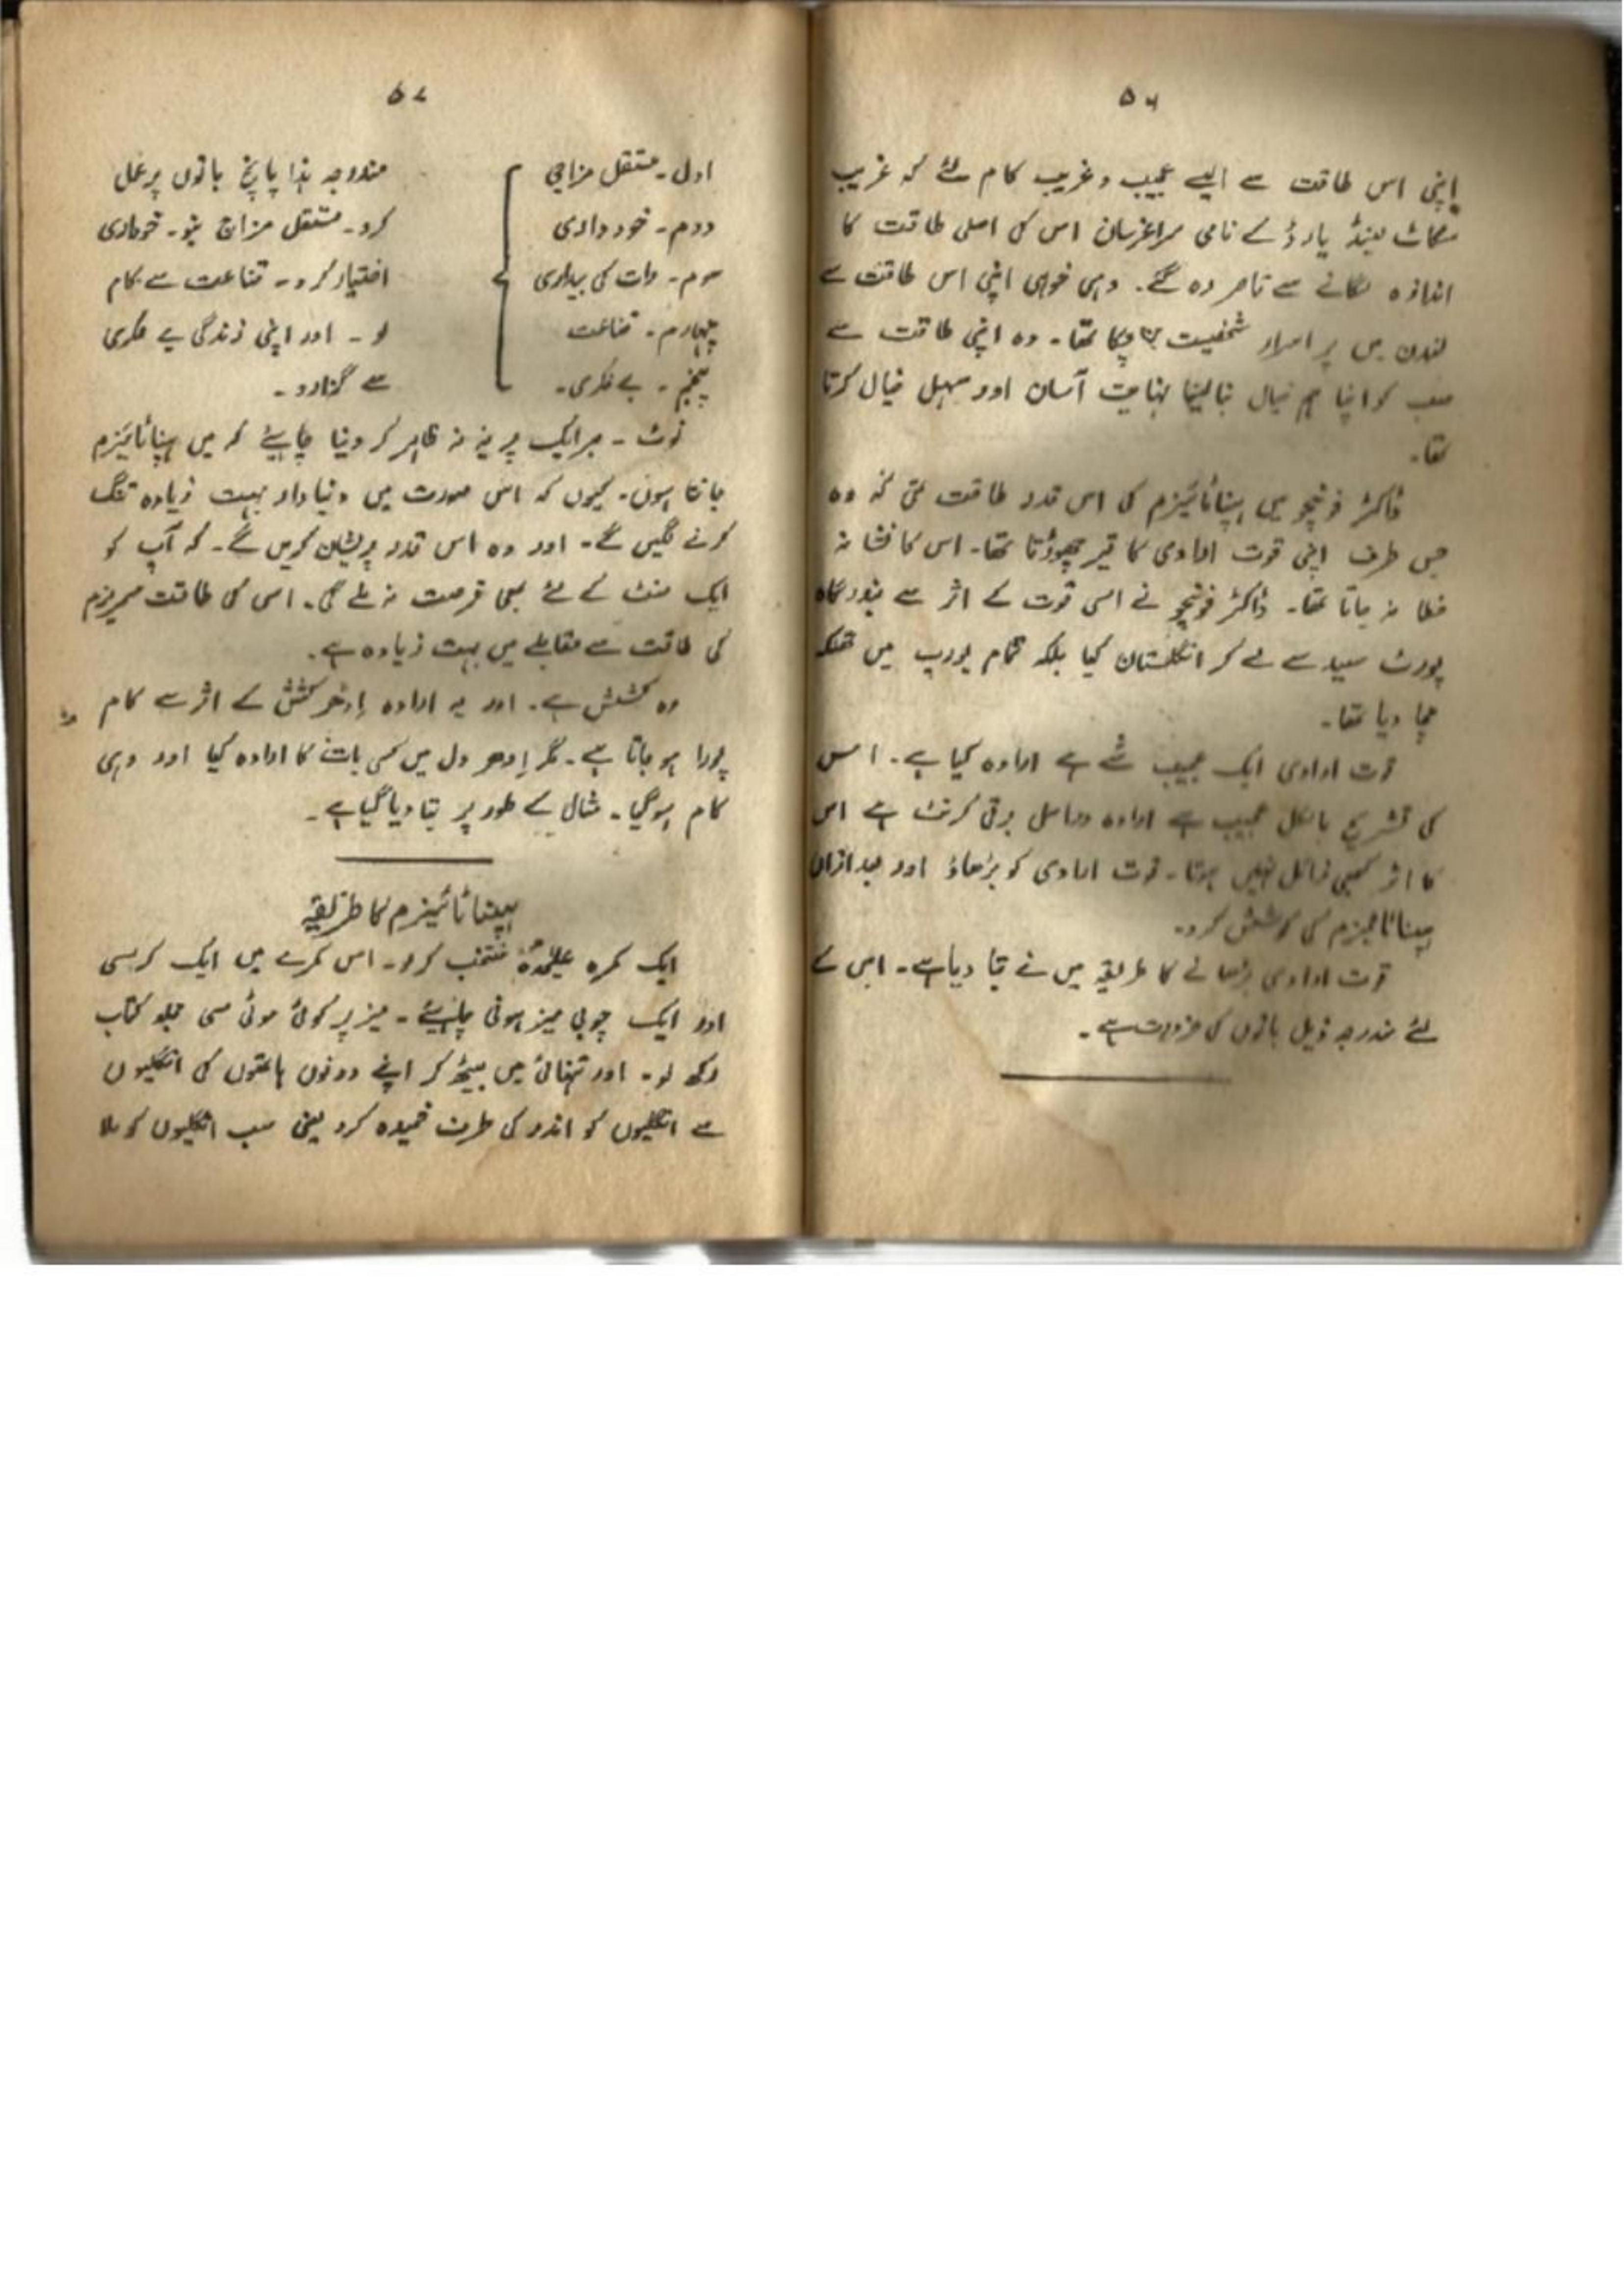 ۵۶
اپنی اس طاقت سے ایسے عجیب و غریب کام لئے کہ غریب
سکاٹ لینڈ یارڈ کے نامی سراغرسان اس کی اصلی طاقت کا
اندازہ لگانے سے قاصر رہ گئے۔ وہی خواہی اپنی اس طاقت سے
لندن میں پر اسرار شخصیت بن چکا تھا۔ وہ اپنی طاقت سے
سب کو اپنا ہم خیال بنا لینا نہایت آسان اور سہل خیال کرتا
تھا۔
ڈاکٹر فونچو میں ہپناٹائیزم کی اس قدر طاقت تھی کہ وہ
جس طرف اپنی قوت ارادی کا تیر چھوڑتا تھا۔ اس کا نشانہ
خطا نہ جاتا تھا۔ ڈاکٹر فونچو نے اسی قوت کے اثر سے بندرگاہ
پورٹ سعید سے لے کر انگلستان کیا بلکہ تمام یورپ میں تہلکہ
مچا دیا تھا۔
قوت ارادی ایک عجیب شے ہے ارادہ کیا ہے۔ اس
کی تشریح بالکل عجیب ہے ارادہ دراصل برقی کرنٹ ہے اس
کا اثر کبھی زائل نہیں ہوتا۔ قوت ارادی کو بڑھاؤ اور بعد ازاں
ہپناٹائیزم کی کوشش کرو۔
قوت ارادی بڑھانے کا طریقہ میں نے بتا دیا ہے۔ اس کے
لئے مندرجہ ذیل باتوں کی ضرورت ہے۔
۵۷
اول۔ مستقل مزاجی مندرجہ ہذا پانچ باتوں پر عمل
دوم۔ خود داری کرو۔ مستقل مزاج بنو۔ خودداری
سوم۔ رات کی بیداری اختیار کرو۔ قناعت سے کام
چہارم۔ قناعت لو۔ اور اپنی زندگی بے فکری
پنجم۔ بے فکری۔ سے گزارو۔
نوٹ۔ ہر ایک پر یہ نہ ظاہر کر دینا چاہیئے کہ میں ہپناٹائیزم
جانتا ہوں۔ کیوں کہ اس صورت میں دنیا دار بہت زیادہ تنگ
کرنے لگیں گے۔ اور وہ اس قدر پریشان کریں گے۔ کہ آپ کو
ایک منٹ کے لئے بھی فرصت نہ ملے گی۔ اس کی طاقت مسمریزم
کی طاقت سے مقابلے میں بہت زیادہ ہے۔
وہ کشش ہے۔ اور یہ ارادہ اِدھر کشش کے اثر سے کام
پورا ہو جاتا ہے۔ مگر اِدھر دل میں کسی بات کا ارادہ کیا اور وہی
کام ہو گیا۔ مثال کے طور پر بتا دیا گیا ہے۔
ہپناٹائیزم کا طریقہ
ایک کمرہ علیحدہ منتخب کرو۔ اس کمرے میں ایک کرسی
اور ایک چوبی میز ہونی چاہیئے۔ میز پر کوئی موٹی سی مجلد کتاب
رکھ لو۔ اور تنہائی میں بیٹھ کر اپنے دونوں ہاتھوں کی انگلیوں
سے انگلیوں کو اندر کی طرف خمیدہ کرو یعنی سب انگلیوں کو ملا